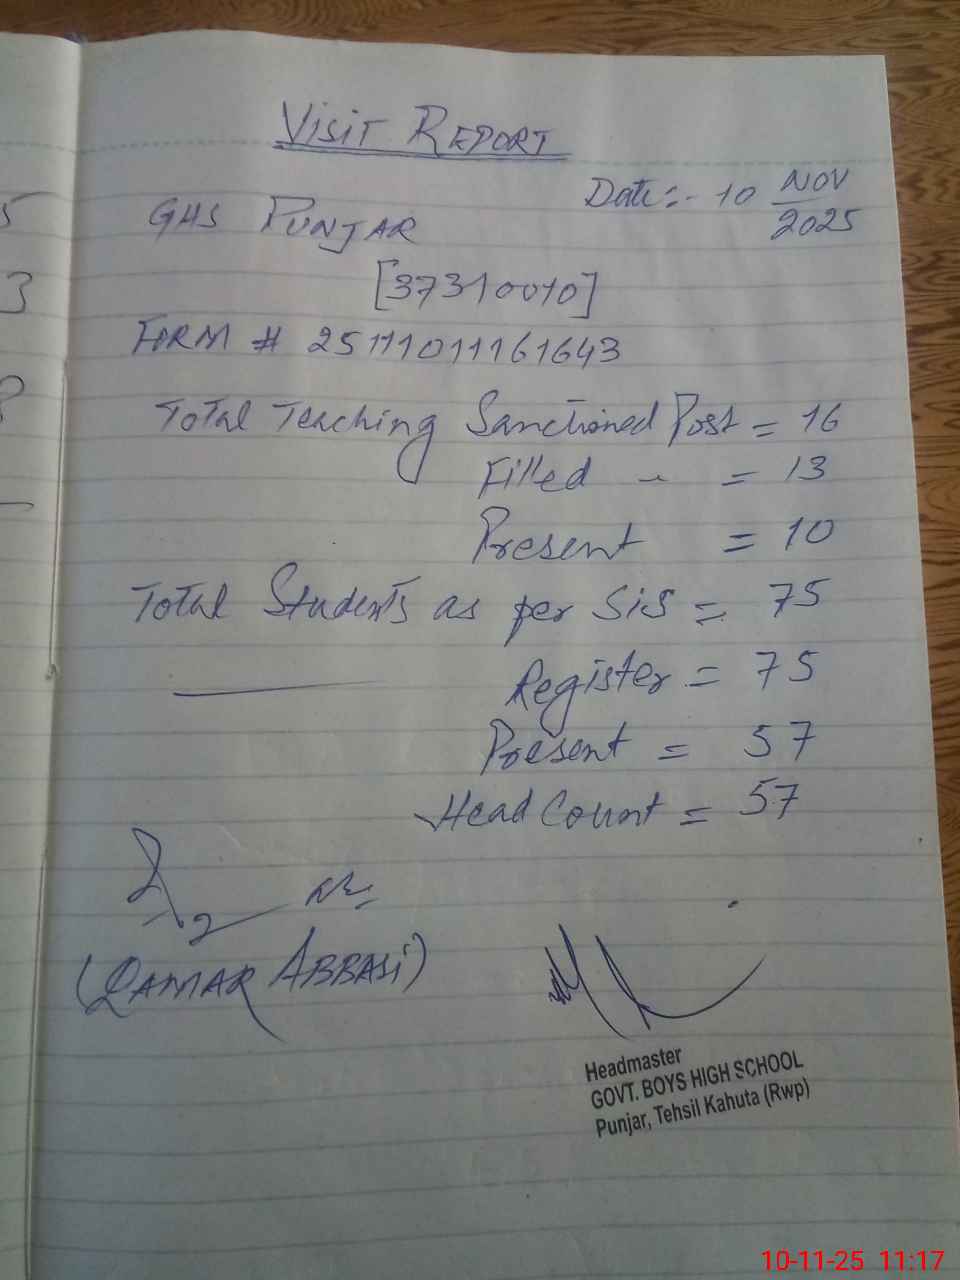 VISIT REPORT
Date:- 10 NOV
2025
GHS PUNJAR
[37310010]
FORM # 25111011161643
Total Teaching Sanctioned Post = 16
Filled - = 13
Present = 10
Total Students as per SIS = 75
Register = 75
Present = 57
Head Count = 57
(QAMAR ABBASI)
Headmaster
GOVT. BOYS HIGH SCHOOL
Punjar, Tehsil Kahuta (Rwp)
10-11-25 11:17